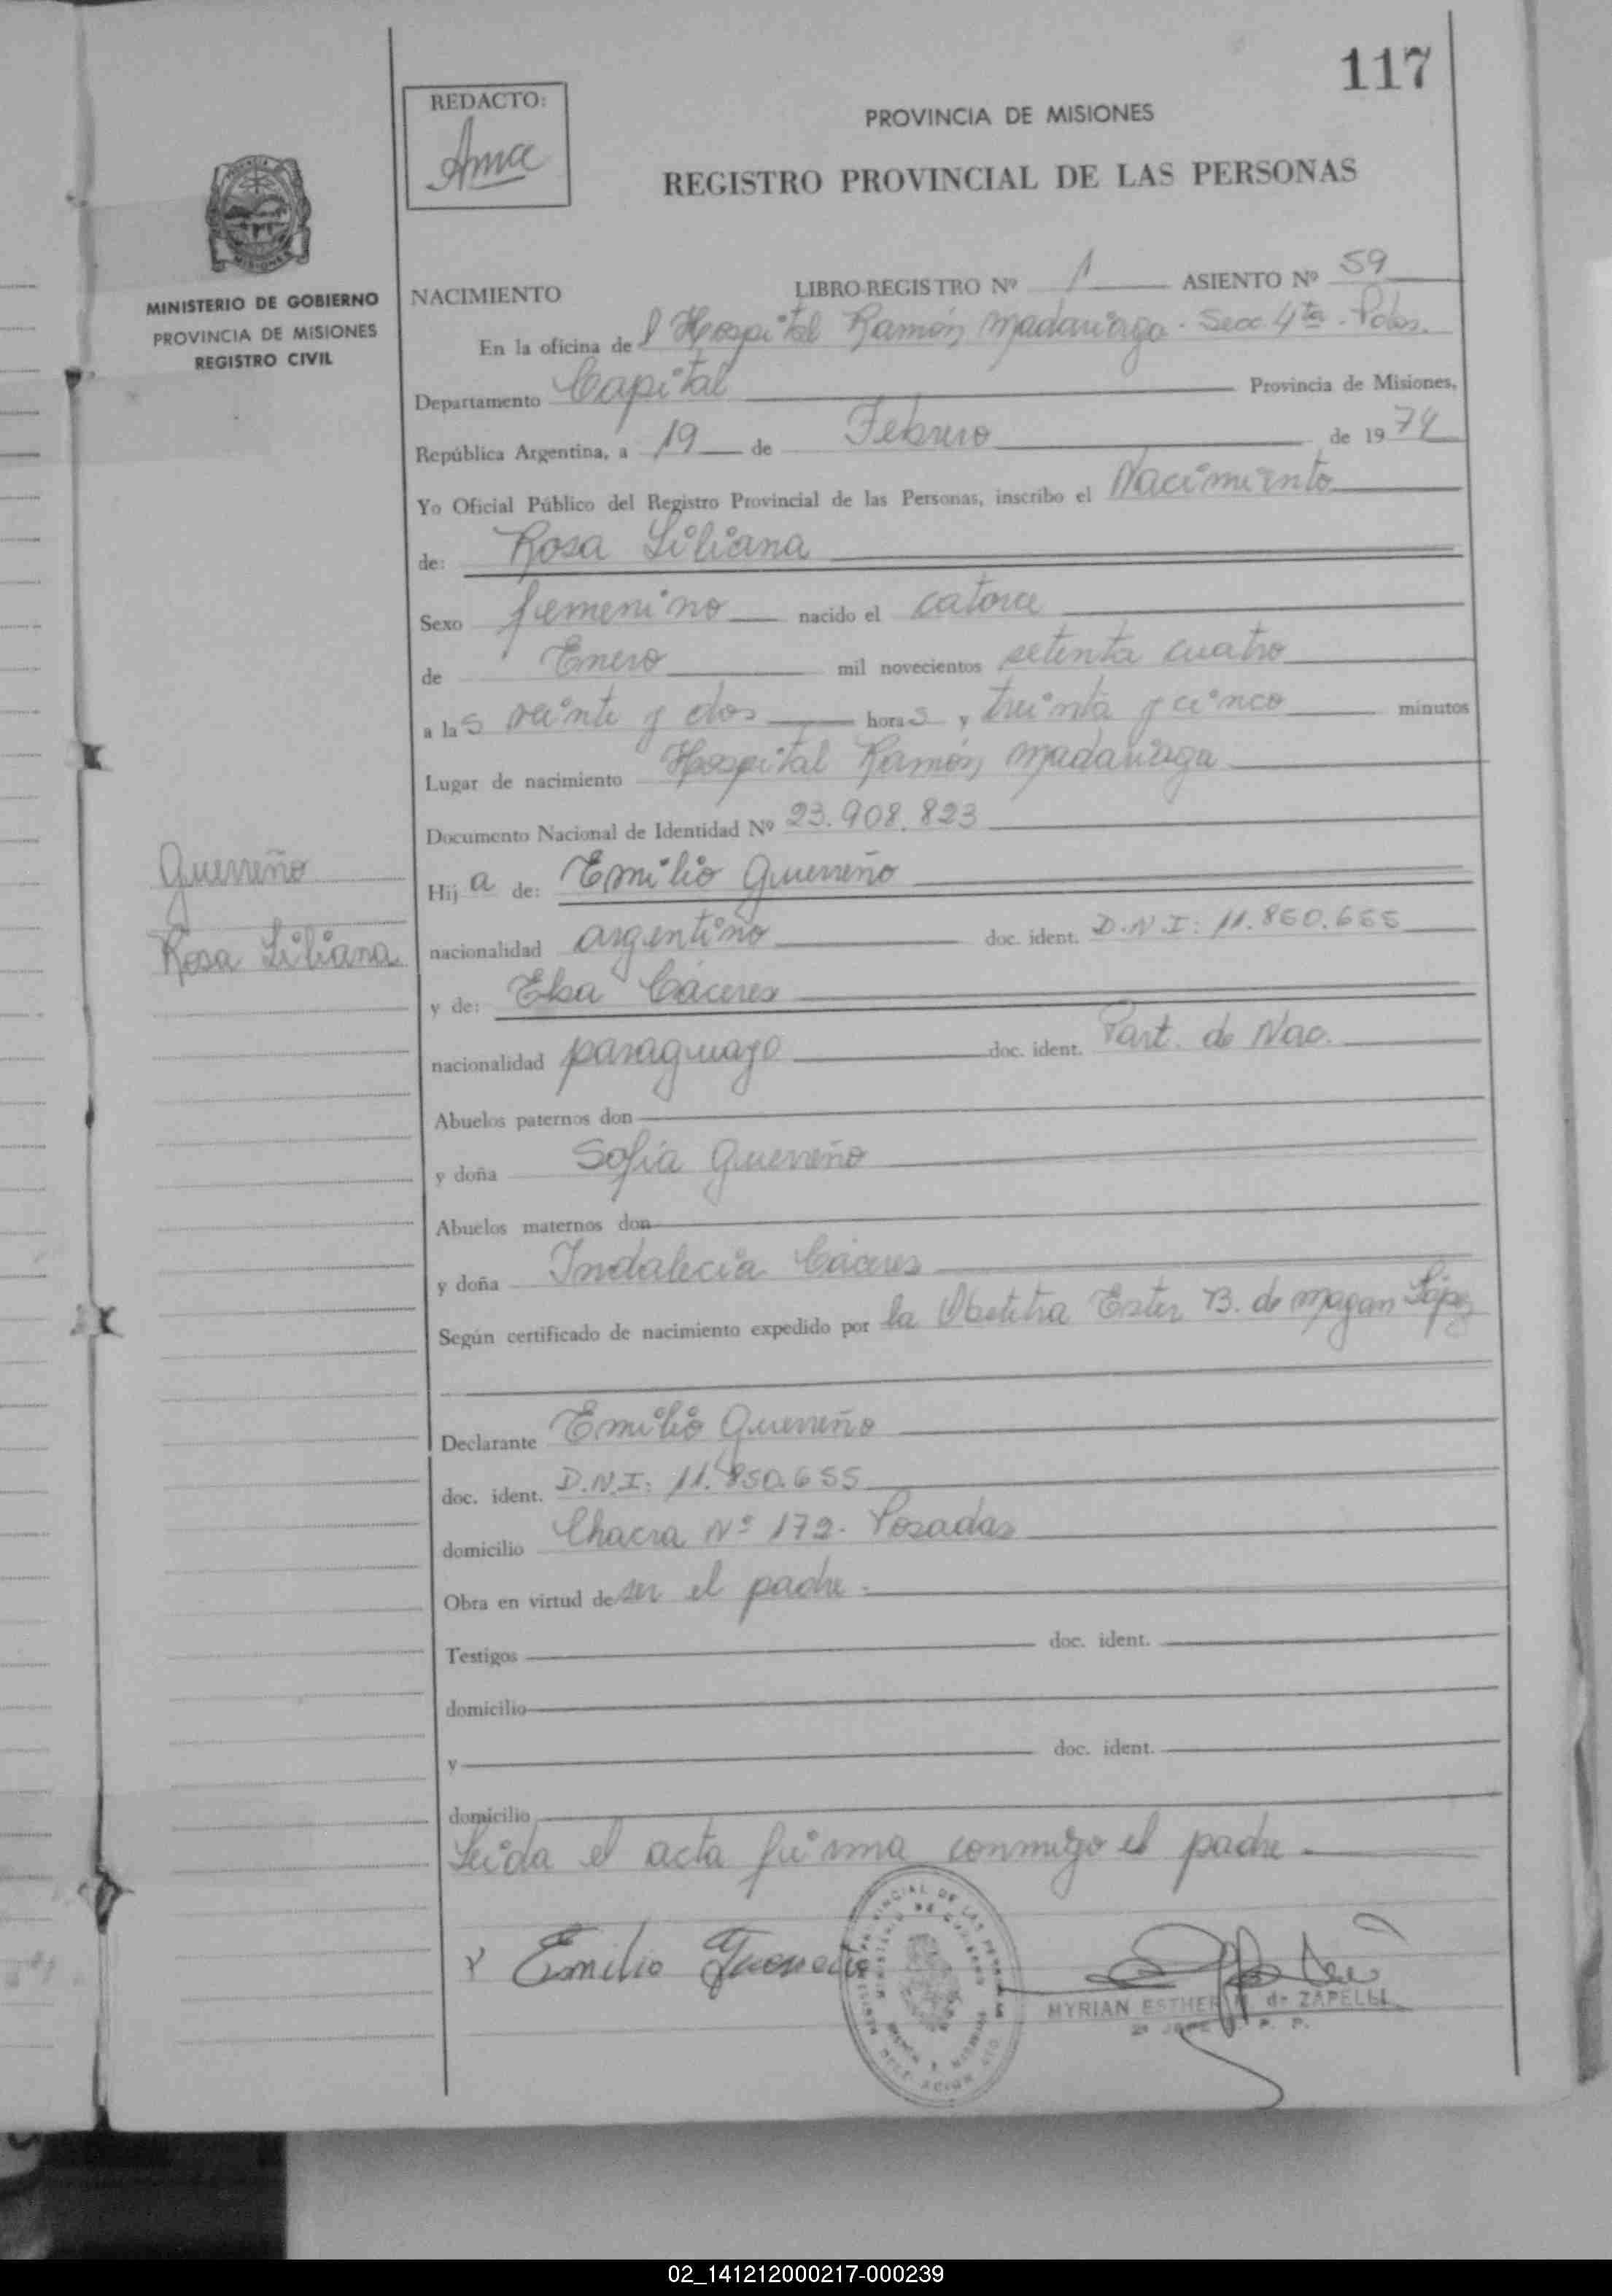 117
REDACTO:
Ama
PROVINCIA DE MISIONES
REGISTRO PROVINCIAL DE LAS PERSONAS
MISIONES
MINISTERIO DE GOBIERNO
PROVINCIA DE MISIONES
REGISTRO CIVIL
NACIMIENTO LIBRO-REGISTRO Nº 1 ASIENTO Nº 59
En la oficina del Hospital Ramón Madariaga. Secc. 4ta. Pdas.
Departamento Capital Provincia de Misiones,
República Argentina, a 19 de Febrero de 1974
Yo Oficial Público del Registro Provincial de las Personas, inscribo el Nacimiento
de: Rosa Liliana
Sexo femenino nacido el catorce
de Enero mil novecientos setenta cuatro
a las veinte y dos horas y treinta y cinco minutos
Lugar de nacimiento Hospital Ramón Madariaga
Documento Nacional de Identidad Nº 23.908.823
Guerreño
Rosa Liliana
Hija de: Emilio Guerreño
nacionalidad argentino doc. ident. D.N.I: 11.850.655
y de: Elsa Cáceres
nacionalidad paraguayo doc. ident. Part. de Nac.
Abuelos paternos don
y doña Sofia Guerreño
Abuelos maternos don
y doña Indalecia Cáceres
Según certificado de nacimiento expedido por la Obstetra Ester B. de Magan López
Declarante Emilio Guerreño
doc. ident. D.N.I: 11.850.655
domicilio Chacra Nº 172. Posadas
Obra en virtud de ser el padre.
Testigos doc. ident.
domicilio
y doc. ident.
domicilio
Leida el acta firma conmigo el padre
Emilio Guerreño
MYRIAN ESTHER de ZAPELLI
02_141212000217-000239